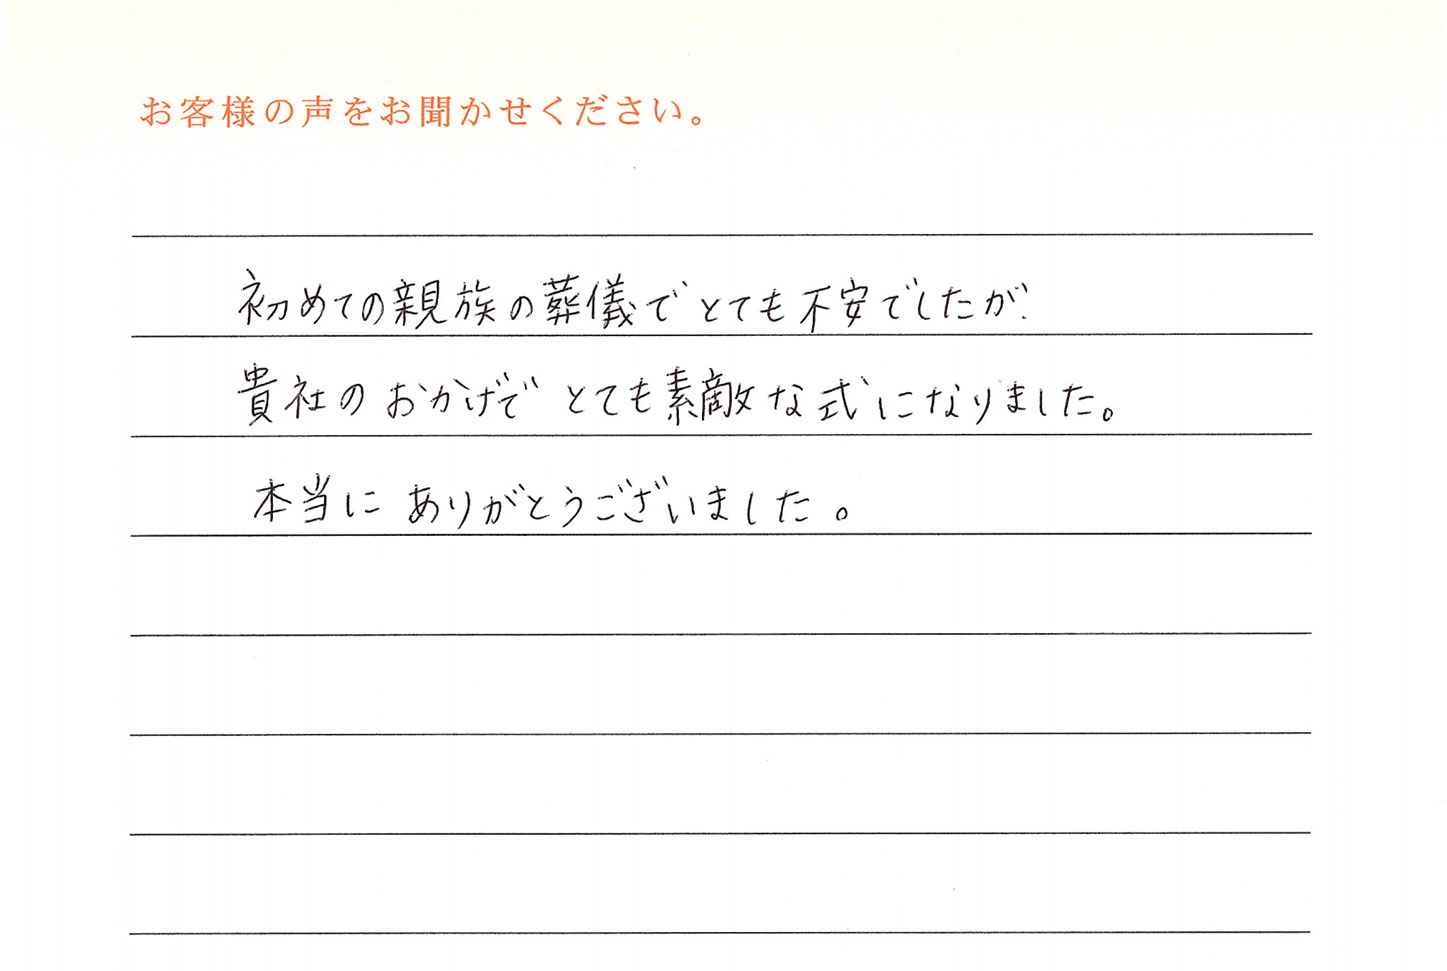 お客様の声をお聞かせください。
初めての親族の葬儀でとても不安でしたが、
貴社のおかげでとても素敵な式になりました。
本当にありがとうございました。